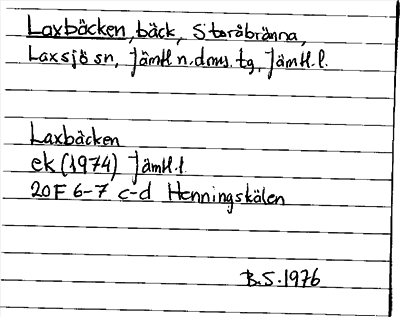 Laxbäcken, bäck, Storåbränna,
Laxsjö sn, Jämtl. n. dms. tg, Jämtl. l.
Laxbäcken
ek (1974) Jämtl. l.
20F 6-7 c-d Henningskälen
B.S. 1976